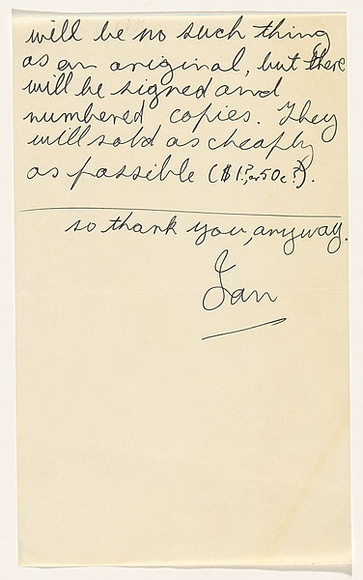 will be no such thing
as an original, but there
will be signed and
numbered copies. They
will sold as cheaply
as possible ($1?, or 50c?).
so thank you, anyway.
Ian